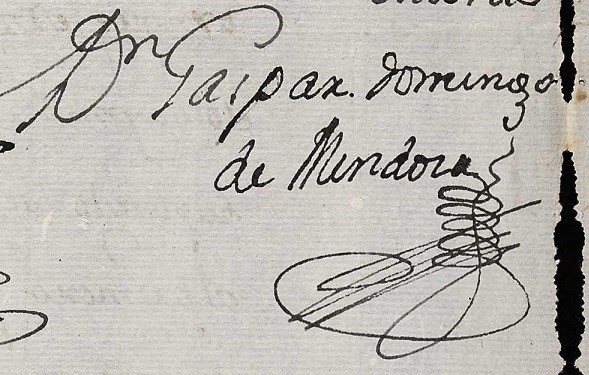 Dn Gaspar. domingo
de Mendoza